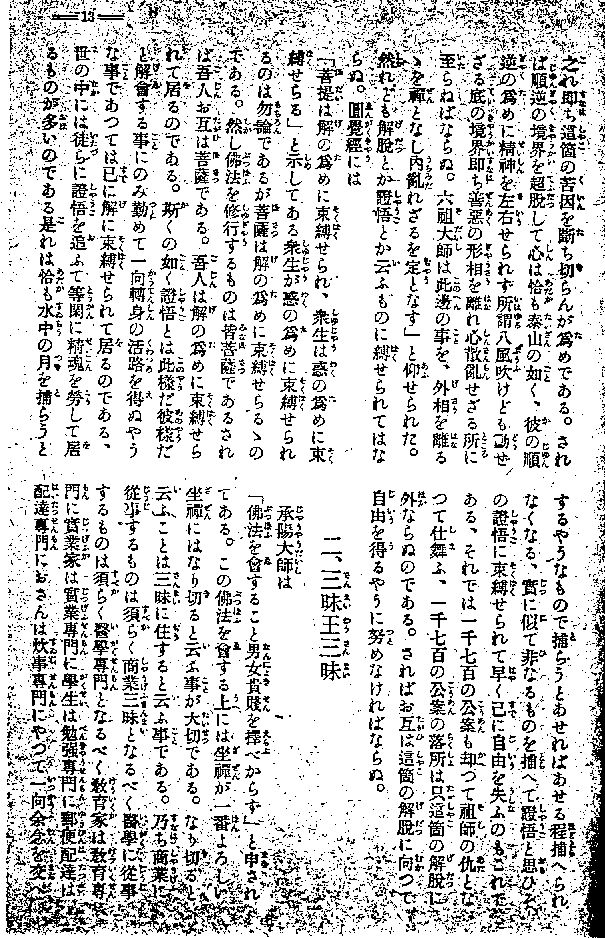 13
之れ即ち這箇の苦因を断ち切らんが爲めである。され
ば順逆の境界を超脱して心は恰も泰山の如く、彼の順
逆の爲めに精神を左右せられず所謂八風吹けども動ぜ
ざる底の境界即ち善惡の形相を離れ心散亂せざる所に
至らねばならぬ。六祖大師は此邊の事を、外相を離る
ゝを禪となし内亂れざるを定となす」と仰せられた。
然れども解脱とか證悟とか云ふものに縛せられてはな
らぬ。圓覺經には
「菩提は解の爲めに束縛せられ、衆生は惑の爲めに束
縛せらる」と示してある衆生が惑の爲めに束縛せられ
るのは勿論であるが菩薩は解の爲めに束縛せらるゝの
である。然し佛法を修行するものは皆菩薩であるされ
ば吾人お互は菩薩である。吾人は解の爲めに束縛せら
れて居るのである。斯くの如く證悟とは此樣だ彼樣だ
と解會する事にのみ勤めて一向轉身の活路を得ぬやう
な事であつては已に解に束縛せられて居るのである、
世の中には徒らに證悟を追ふて等閑に精魂を勞して居
るものが多いのである是れは恰も水中の月を捕らうと
するやうなもので捕らうとあせればあせる程捕へられ
なくなる、實に似て非なるものを捕へて證悟と思ひそ
の證悟に束縛せられて早く已に自由を失ふのもこれで
ある、それでは一千七百の公案も却つて祖師の仇とな
つて仕舞ふ、一千七百の公案の落所は只這箇の解脱に
外ならぬのである。さればお互は這箇の解脱に向つて
自由を得るやうに努めなければならぬ。
二、三昧王三昧
承陽大師は
「佛法を會すること男女貴賤を擇べからず」と申され
てある。この佛法を會する上には坐禪が一番よろしい
坐禪にはなり切ると云ふ事が大切である。なり切ると
云ふことは三昧に住すると云ふ事である。乃ち商業に
從事するものは須らく商業三昧となるべく醫學に從事
するものは須らく醫學專門となるべく敎育家は敎育專
門に實業家は實業專門に學生は勉强專門に郵便配達は
配達專門におさんは炊事專門にやつて一向余念を交へ